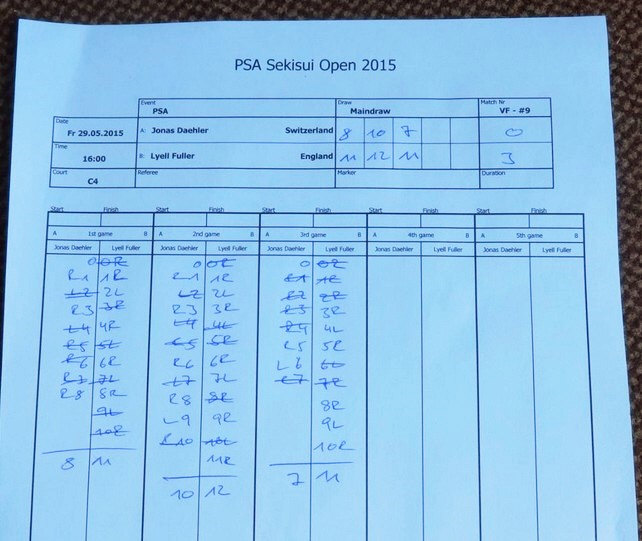 PSA Sekisui Open 2015
Event Draw Match Nr
PSA Maindraw VF - #9
Date
Fr 29.05.2015 A: Jonas Daehler Switzerland 8 10 7 0
Time
16:00 B: Lyell Fuller England 11 12 11 3
Court Referee Marker Duration
C4
Start Finish Start Finish Start Finish Start Finish Start Finish
A 1st game B A 2nd game B A 3rd game B A 4th game B A 5th game B
Jonas Daehler Lyell Fuller Jonas Daehler Lyell Fuller Jonas Daehler Lyell Fuller Jonas Daehler Lyell Fuller Jonas Daehler Lyell Fuller
0 0R 0 0R 0 0R
R1 1R R1 1R R1 1R
L2 2L L2 2L R2 2R
R3 3R R3 3R R3 3R
L4 4R L4 4L R4 4L
R5 5L R5 5R R5 5R
R6 6R R6 6R L6 6L
R7 7L L7 7L R7 7R
R8 8R R8 8R 8R
9L L9 9R 9L
10R R10 10L 10R
8 11 11R 7 11
10 12